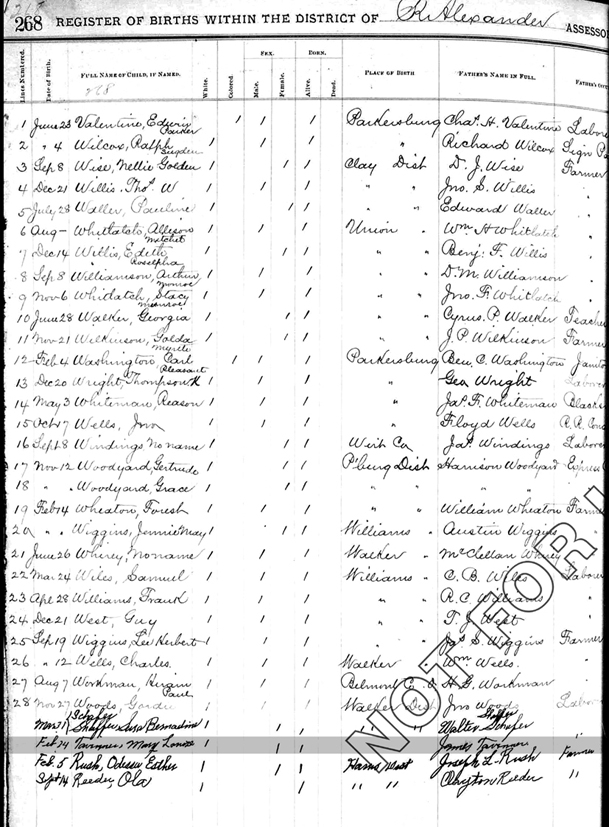 268 REGISTER OF BIRTHS WITHIN THE DISTRICT OF R. Alexander ASSESSO
Lines Numbered. Date of Birth. FULL NAME OF CHILD, IF NAMED. White. Colored. SEX. Male. Female. BORN. Alive. Dead. PLACE OF BIRTH FATHER'S NAME IN FULL. FATHER'S
268
1 June 23 Valentine, Edwin Parker 1 1 1 Parkersburg Chas. H. Valentine Labore
2 " 4 Wilcox, Ralph Sugden 1 1 1 " Richard Wilcox Sign Pa
3 Sep 8 Wise, Nellie Golden 1 1 1 Clay Dist D. J. Wise Farmer
4 Dec 21 Willis. Thos W 1 1 1 " " Jno. S. Willis "
5 July 28 Waller, Pauline 1 1 1 " " Edward Waller "
6 Aug - Allison 1 1 1 Union " Wm H Whitlatch "
7 Dec 14 Willis, Edith 1 1 1 " " Benj. F. Willis "
8 Sep 8 Williamson, Arthur Monroe 1 1 1 " " D. M. Williamson "
9 Nov 6 Whitlatch, Stacy 1 1 1 " " Jno. F. Whitlatch "
10 June 28 Walker, Georgia 1 1 1 " " Cyrus. P. Walker Teache
11 Nov 21 Wilkinson, Golda Merile 1 1 1 " " J. P. Wilkinson Farmer
12 Feb 4 Washington, Carl Pleasant 1 1 1 Parkersburg Benj. C. Washington Janito
13 Dec 20 Wright, Thompson K 1 1 1 " Geo Wright Laborer
14 May 3 Whiteman, Reason 1 1 1 " Jas. F. Whiteman Blacks
15 Oct 17 Wells, Jno 1 1 1 " Floyd Wells R. R. Con
16 Sept 8 Windings, No name 1 1 1 Wirt Co Jas. Windings Laborer
17 Nov 12 Woodyard, Gertrude 1 1 1 P'burg Dist Harrison Woodyard Express
18 " " Woodyard, Grace 1 1 1 " " " "
19 Feb 14 Wheaton, Forest 1 1 1 " " William Wheaton Farme
20 " " Wiggins, Jennie May 1 1 1 Williams " Austin Wiggins "
21 June 26 Whirey, No name 1 1 1 Walker " McClellan Whirey
22 Mar 24 Wiles, Samuel 1 1 1 Williams " C. B. Wiles Laborer
23 Apr 28 Williams, Frank 1 1 1 " " R. C. Williams
24 Dec 21 West, Guy 1 1 1 " " T. J. West
25 Sep 19 Wiggins, Lee Herbert 1 1 1 " " Jas S. Wiggins Farmer
26 " 12 Wells, Charles. 1 1 1 Walker " Wm. Wells. "
27 Aug 7 Workman, Hiram Paul 1 1 1 Belmont C. O H. G. Workman "
28 Nov 27 Woods, Gordie 1 1 1 Walker Dist Jno Woods Labor
Mar 7 Shaffer Schafer Susa Bernadine 1 1 1 " " Walter Schafer Shaffer
Feb 24 Tavenner, Mary Louise 1 1 1 James Tavenner
Feb. 5 Rush, Odessa Esther 1 1 1 Harris Dist Joseph L. Rush Farmer
Sept 14 Reeder, Ola 1 1 1 " " Clayton Reeder "
NOT FOR